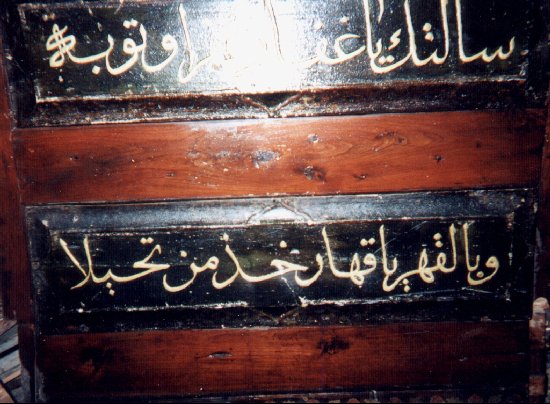 سالتك يا غفار غفرا وتوبة
وبالقهر يا قهار خذ من تحيلا